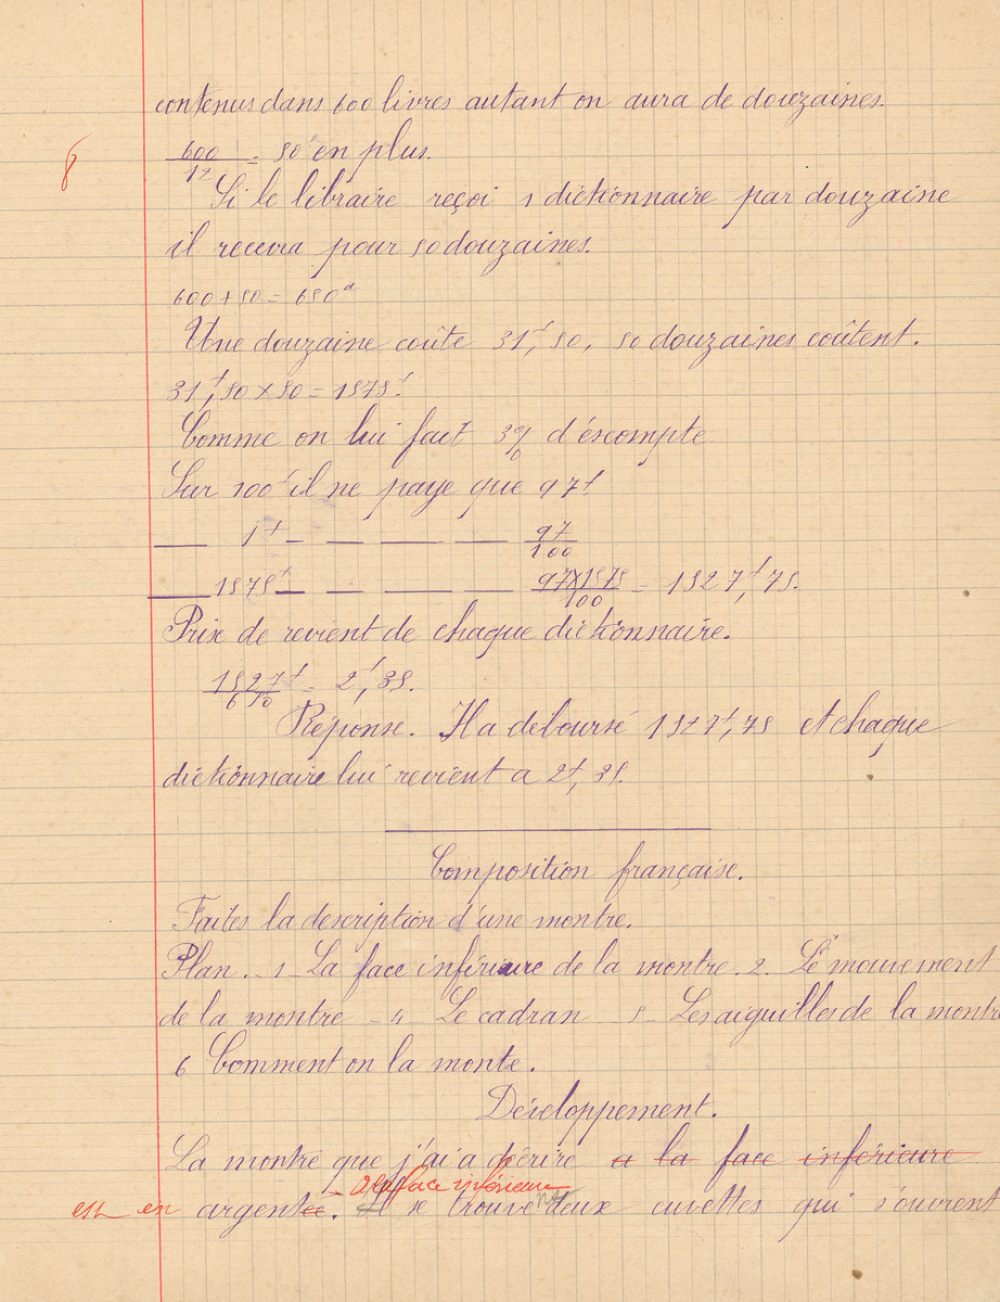 contenus dans 600 livres autant on aura de douzaines.
8
600/12 = 50 en plus.
Si le libraire reçoi 1 dictionnaire par douzaine
il recevra pour 50 douzaines.
600 + 50 = 650 d
Une douzaine coûte 31f,50, 50 douzaines coûtent.
31f,50 × 50 = 1575f.
Comme on lui fait 3% d'éscompte
Sur 100f il ne paye que 97f
— 1f — — — — 97/100
— 1575f — — — — 97×1575/100 = 1527f,75.
Prix de revient de chaque dictionnaire.
1527f/650 = 2f,35.
Réponse. Il a deboursé 1527f,75 et chaque
dictionnaire lui revient a 2f,35.
Composition française.
Faites la description d'une montre.
Plan. - 1 - La face inférieure de la montre. 2. Le mouvement
de la montre - 4 - Le cadran - 5 - Les aiguilles de la montre
6 Comment on la monte.
Développement.
La montre que j'ai a décrire a la face inférieure
A la face inférieure
est en argentée. se trouvent deux cuvettes qui s'ouvrent